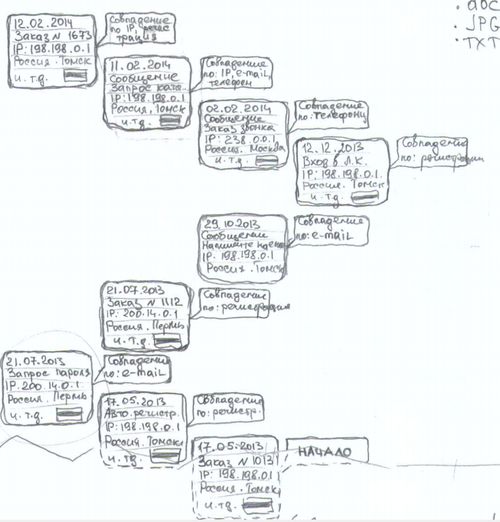 12.02.2014
Заказ N 1673
IP: 198.198.0.1
Россия. Томск
и. т.д.
Совпадение
по IP, регис
трация
.doc
.JPG
.TXT
11.02.2014
Сообщение
Запрос
IP: 198.198.0.1
Россия, Томск
и т.д.
Совпадение
по: IP, e-mail,
телефон
02.02.2014
Сообщение
Заказ звонка
IP: 238.0.0.1
Россия. Москва
и т.д.
Совпадение
по: телефону
12.12.2013
Вход в Л.К.
IP: 198.198.0.1.
Россия. Томск
и т.д.
Совпадение
по: регистрации
29.10.2013
Сообщение
Напишите
IP: 198.198.0.1
Россия. Томск
Совпадение
по: e-mail
21.07.2013
Заказ N 1112
IP: 200.14.0.1
Россия. Пермь
и. т.д.
Совпадение
по: регистрация
21.07.2013
Запрос пароля
IP. 200.14.0.1
Россия. Пермь
и. т.д.
Совпадение
по: e-mail
17.05.2013
Авто.регистр.
IP: 198.198.0.1
Россия. Томск
и. т.д.
Совпадение
по: регистр.
17.05.2013
Заказ N 1013
IP: 198.198.0.1
Россия. Томск
и. т.д.
НАЧАЛО